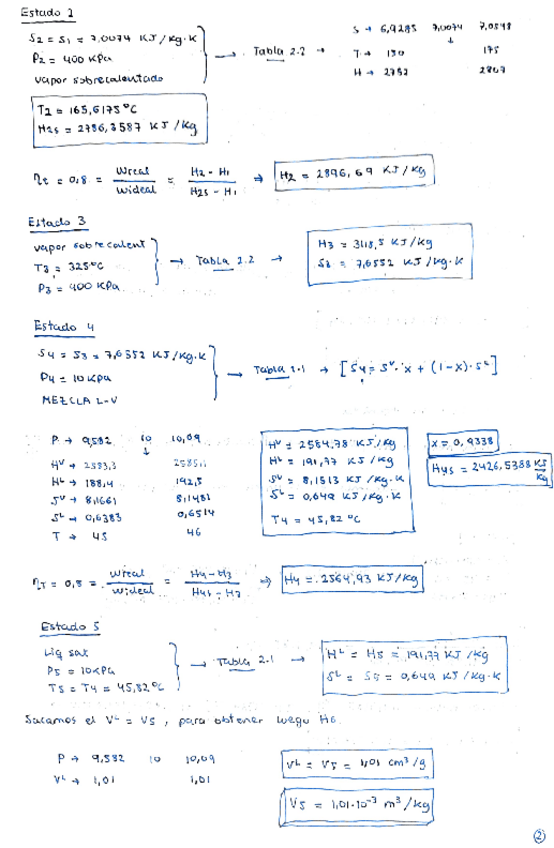 Estado 2
S2 = S1 = 7,0074 KJ/kg·K
P2 = 400 KPa
vapor sobrecalentado
→ Tabla 2.2 →
S → 6,9285 7,0074 7,0548
↓
T → 150 175
H → 2752 2807
T2 = 165,6175 °C
H2s = 2786,3587 KJ/kg
ηt = 0,8 = Wreal / Wideal = H2 - H1 / H2s - H1 ⇒ H2 = 2896,69 KJ/kg
Estado 3
vapor sobrecalent
T3 = 325°C
P3 = 400 KPa
→ Tabla 2.2 →
H3 = 3115,5 KJ/kg
S3 = 7,6552 KJ/kg·K
Estado 4
S4 = S3 = 7,6352 KJ/kg·K
P4 = 10 KPa
MEZCLA L-V
→ Tabla 2.1 → [S4 = S^V · x + (1-x)·S^L]
P → 9,582 10 10,09
↓
H^V → 2583,3 2585,1
H^L → 188,4 192,5
S^V → 8,1661 8,1481
S^L → 0,6383 0,6514
T → 45 46
H^V = 2584,78 KJ/kg
H^L = 191,77 KJ/kg
S^V = 8,1513 KJ/kg·K
S^L = 0,649 KJ/kg·K
T4 = 45,82 °C
x = 0,9338
H4s = 2426,5388 KJ/kg
ηT = 0,8 = Wreal / Wideal = H4 - H3 / H4s - H3 ⇒ H4 = 2564,93 KJ/kg
Estado 5
Liq sat
P5 = 10KPa
T5 = T4 = 45,82°C
→ Tabla 2.1 →
H^L = H5 = 191,77 KJ/kg
S^L = S5 = 0,649 KJ/kg·K
Sacamos el V^L = V5, para obtener luego H6.
P → 9,582 10 10,09
V^L → 1,01 1,01
V^L = V5 = 1,01 cm³/g
V5 = 1,01·10⁻³ m³/kg
2